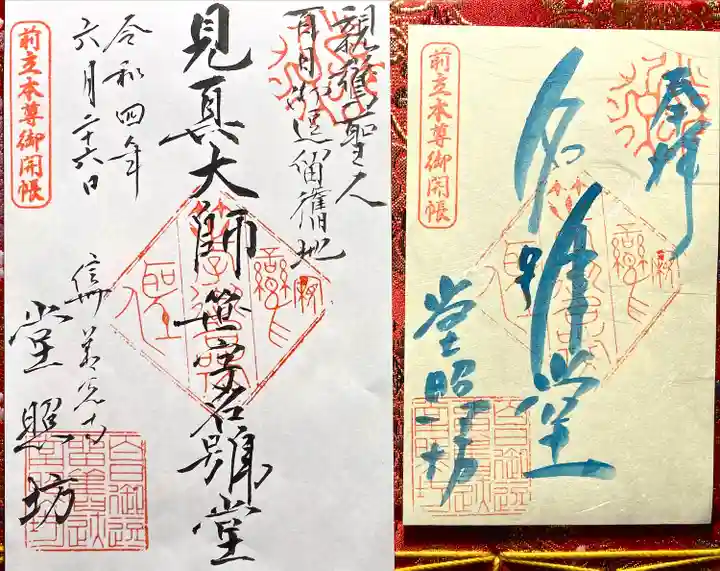 親鸞聖人
百日御逗留舊地
見真大師笹字名號堂
令和四年
六月二十六日
前立本尊御開帳
信州善光寺
堂照坊
奉拝
名號堂
堂照坊
前立本尊御開帳